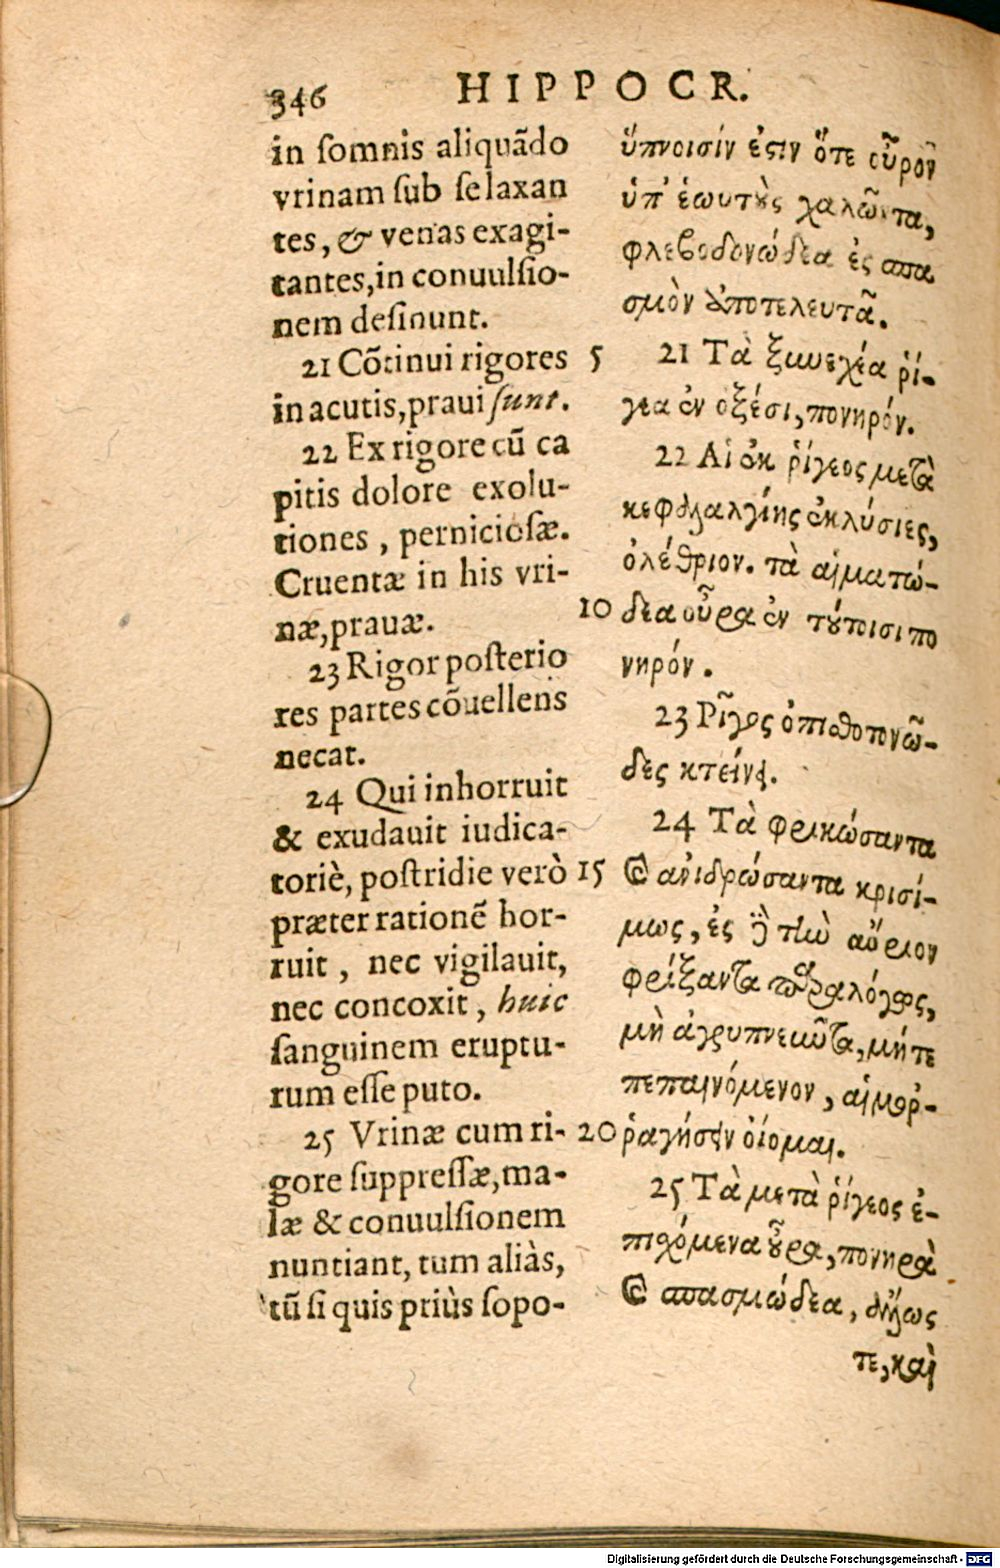 346 HIPPOCR.
in ſomnis aliquãdo
vrinam ſub ſe laxan
tes, & venas exagi-
tantes, in conuulſio-
nem deſinunt.
21 Cõtinui rigores
in acutis, praui ſunt.
22 Ex rigore cũ ca
pitis dolore exolu-
tiones, pernicioſæ.
Cruentæ in his vri-
næ, prauæ.
23 Rigor poſterio
res partes cõuellens
necat.
24 Qui inhorruit
& exudauit iudica-
toriè, poſtridie verò
præter rationẽ hor-
ruit, nec vigilauit,
nec concoxit, huic
ſanguinem eruptu-
rum eſſe puto.
25 Vrinæ cum ri-
gore ſuppreſſæ, ma-
læ & conuulſionem
nuntiant, tum aliàs,
tũ ſi quis priùs ſopo-
ὕπνοισίν ἐστιν ὅτε οὖρον
ὑπ' ἑωυτοὺς χαλῶντα,
φλεβοδονώδεα ἐς σπα
σμὸν ἀποτελευτᾶ.
5 21 Τὰ ξυνεχέα ῥί-
γεα ἐν ὀξέσι, πονηρόν.
22 Αἱ ἐκ ῥίγεος μετὰ
κεφαλαλγίης ἐκλύσιες,
ὀλέθριον. τὰ αἱματώ-
10 δεα οὖρα ἐν τούτοισι πο
νηρόν.
23 Ρῖγος ὀπισθοτονῶ-
δες κτείνει.
24 Τὰ φρικώσαντα
15 καὶ ἀνιδρώσαντα κρισί-
μως, ἐς δὲ τὴν αὔριον
φρίξαντα παραλόγως,
μὴ ἀγρυπνεῦντα, μήτε
πεπαινόμενον, αἱμορ-
20 ῥαγήσειν οἴομαι.
25 Τὰ μετὰ ῥίγεος ἐ-
πισχόμενα οὖρα, πονηρὰ
καὶ σπασμώδεα, ἄλλως
τε, καὶ
Digitalisierung gefördert durch die Deutsche Forschungsgemeinschaft - DFG